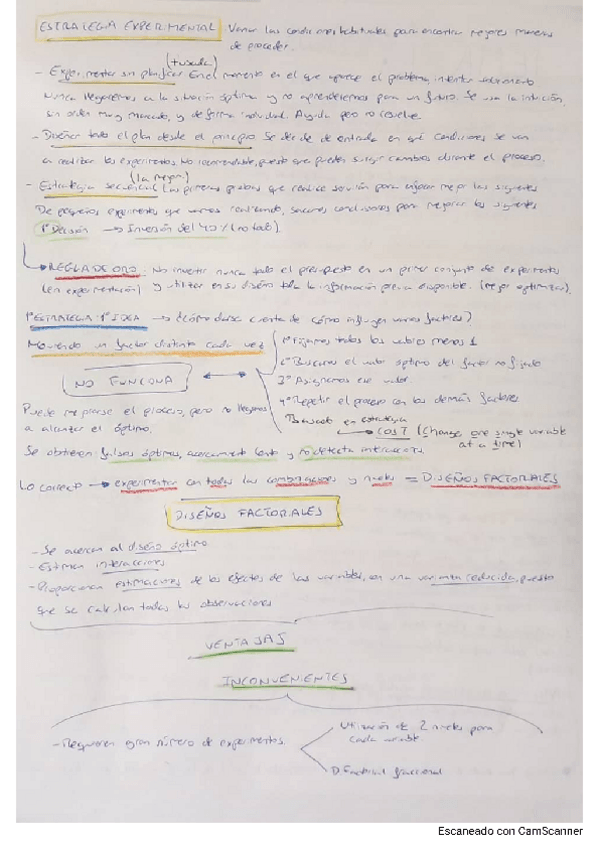 ESTRATEGIA EXPERIMENTAL: Variar las condiciones habituales para encontrar mejores maneras
de proceder.
- Experimentar sin planificar En el momento en el que aparece el problema, intentar
Nunca llegaremos a la situación óptima y no aprenderemos para un futuro. Se usa la intuición,
sin orden muy marcado, y de forma individual. Ayuda pero no resuelve
- Diseñar todo el plan desde el principio Se decide de entrada en qué condiciones se van
a realizar los experimentos. No recomendable, puesto que pueden surgir cambios durante el proceso.
(la mejor)
- Estrategia secuencial Las primeras pruebas que realice servirán para enfocar mejor las siguientes
De pequeños experimentos que vamos realizando, sacamos conclusiones para mejorar los siguientes
1ª Decisión → Inversión del 40% (no todo)
REGLA DE ORO: No invertir nunca todo el presupuesto en un primer conjunto de experimentos
(en experimentación) y utilizar en su diseño toda la información previa disponible. (mejor optimizar).
1ª ESTRATEGIA 1ª IDEA → ¿Cómo darse cuenta de cómo influyen varios factores?
Moviendo un factor distinto cada vez
1º Fijamos todos las variables menos 1
2º Buscamos el valor óptimo del factor no fijado
NO FUNCIONA
3º Asignamos ese valor
4º Repetir el proceso con los demás factores
Puede mejorarse el proceso, pero no llegamos
a alcanzar el óptimo.
Basado en estrategia
COST (Change one single variable
at a time)
Se obtienen falsos óptimos, acercamiento lento y no detecta interacciones
Lo correcto → experimentar con todas las combinaciones y niveles = DISEÑOS FACTORIALES
DISEÑOS FACTORIALES
- Se acercan al diseño óptimo
- Estiman interacciones
- Proporcionan estimaciones de los efectos de las variables, con una varianza reducida, puesto
que se calculan todas las observaciones
VENTAJAS
INCONVENIENTES
- Requieren gran número de experimentos
Utilización de 2 niveles para
cada variable
D. Factorial fraccional
Escaneado con CamScanner